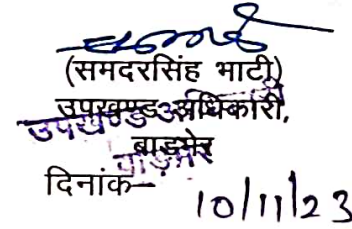 (समदरसिंह भाटी)
उपखण्ड अधिकारी,
उपखण्ड अधिकारी
बाड़मेर
बाड़मेर
दिनांक– 10/11/23